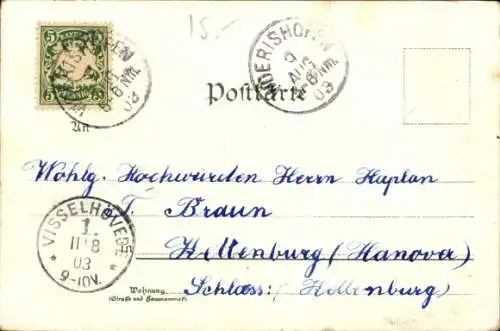 15.-
5 BAYERN 5
WÖRISHOFEN
9
AUG
5-6 Nm.
03
Postkarte
An
Wohlg. Hochwürden Herrn Kaplan
T. Braun
VISSELHÖVEDE
1.
11 8
03
9-10V.
Hellenburg (Hanover)
Wohnung
(Straße und Hausnummer)
Schloss: Hellenburg)